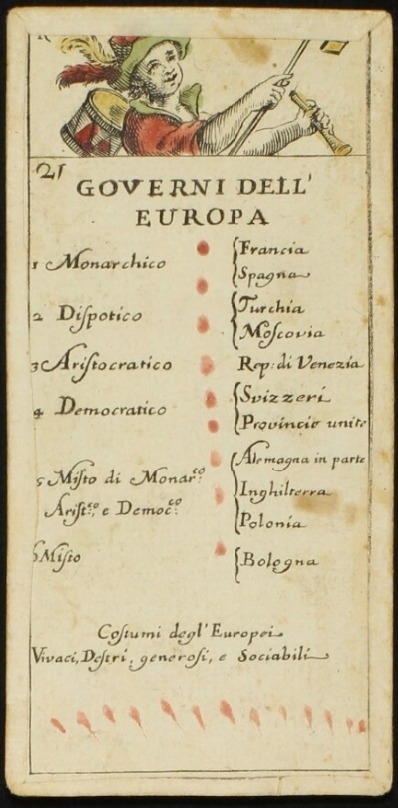 21
GOVERNI DELL'
EUROPA
1 Monarchico
Francia
Spagna
2 Dispotico
Turchia
Moscovia
3 Aristocratico
Rep: di Venezia
4 Democratico
Svizzeri
Provincie unite
5 Misto di Monar.co
Arist.co, e Democ.co
Alemagna in parte
Inghilterra
Polonia
6 Misto
Bologna
Costumi degl'Europei
Vivaci, Destri, generosi, e Sociabili